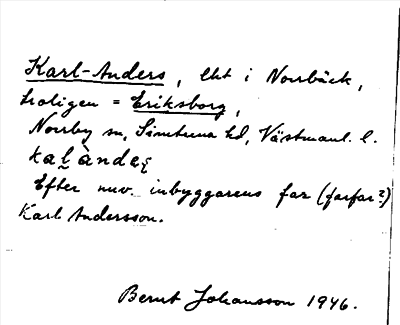 Karl-Anders, lht i Norrbäck,
troligen = Eriksborg,
Norrby sn, Simtuna hd, Västmanl. l.
Efter nuv. inbyggarens far (farfar?)
Karl Andersson.
Bernt Johansson 1946.